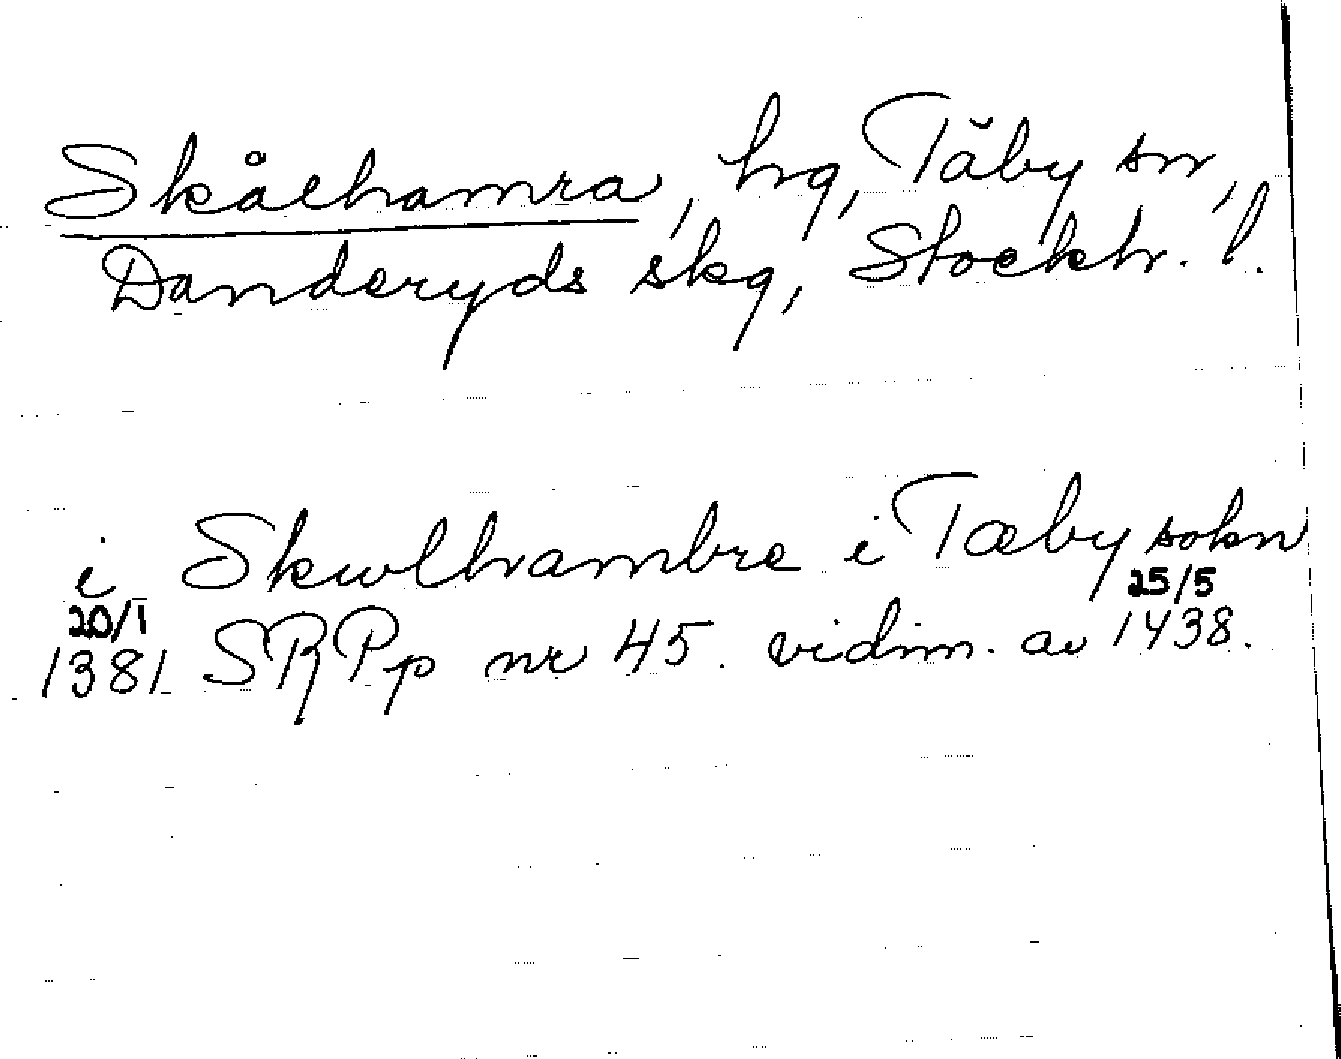 Skålhamra, hg, Täby sn,
Danderyds skg, Stockh. l.
i Skwlhambre i Tæby sokn
20/1 25/5
1381 SRPp nr 45. vidim. av 1438.